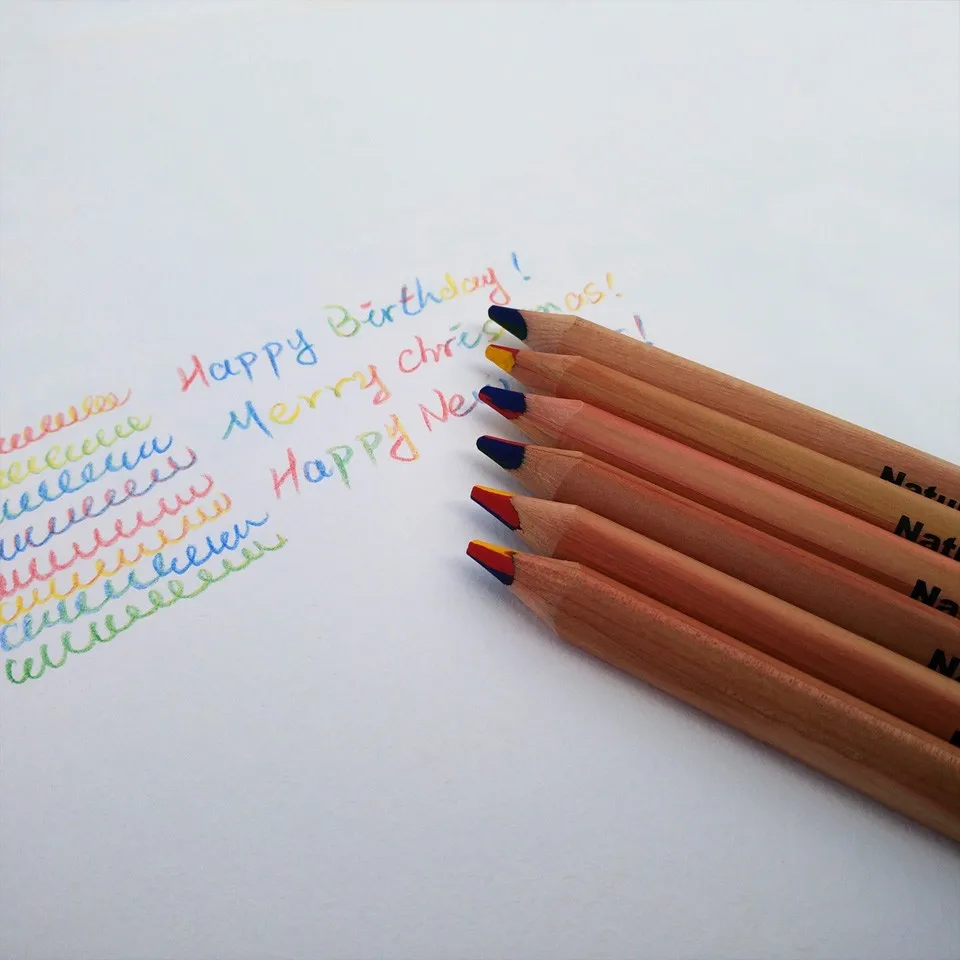 Happy Birthday!
Merry christmas!
Happy New
Natu
Nat
Na
N